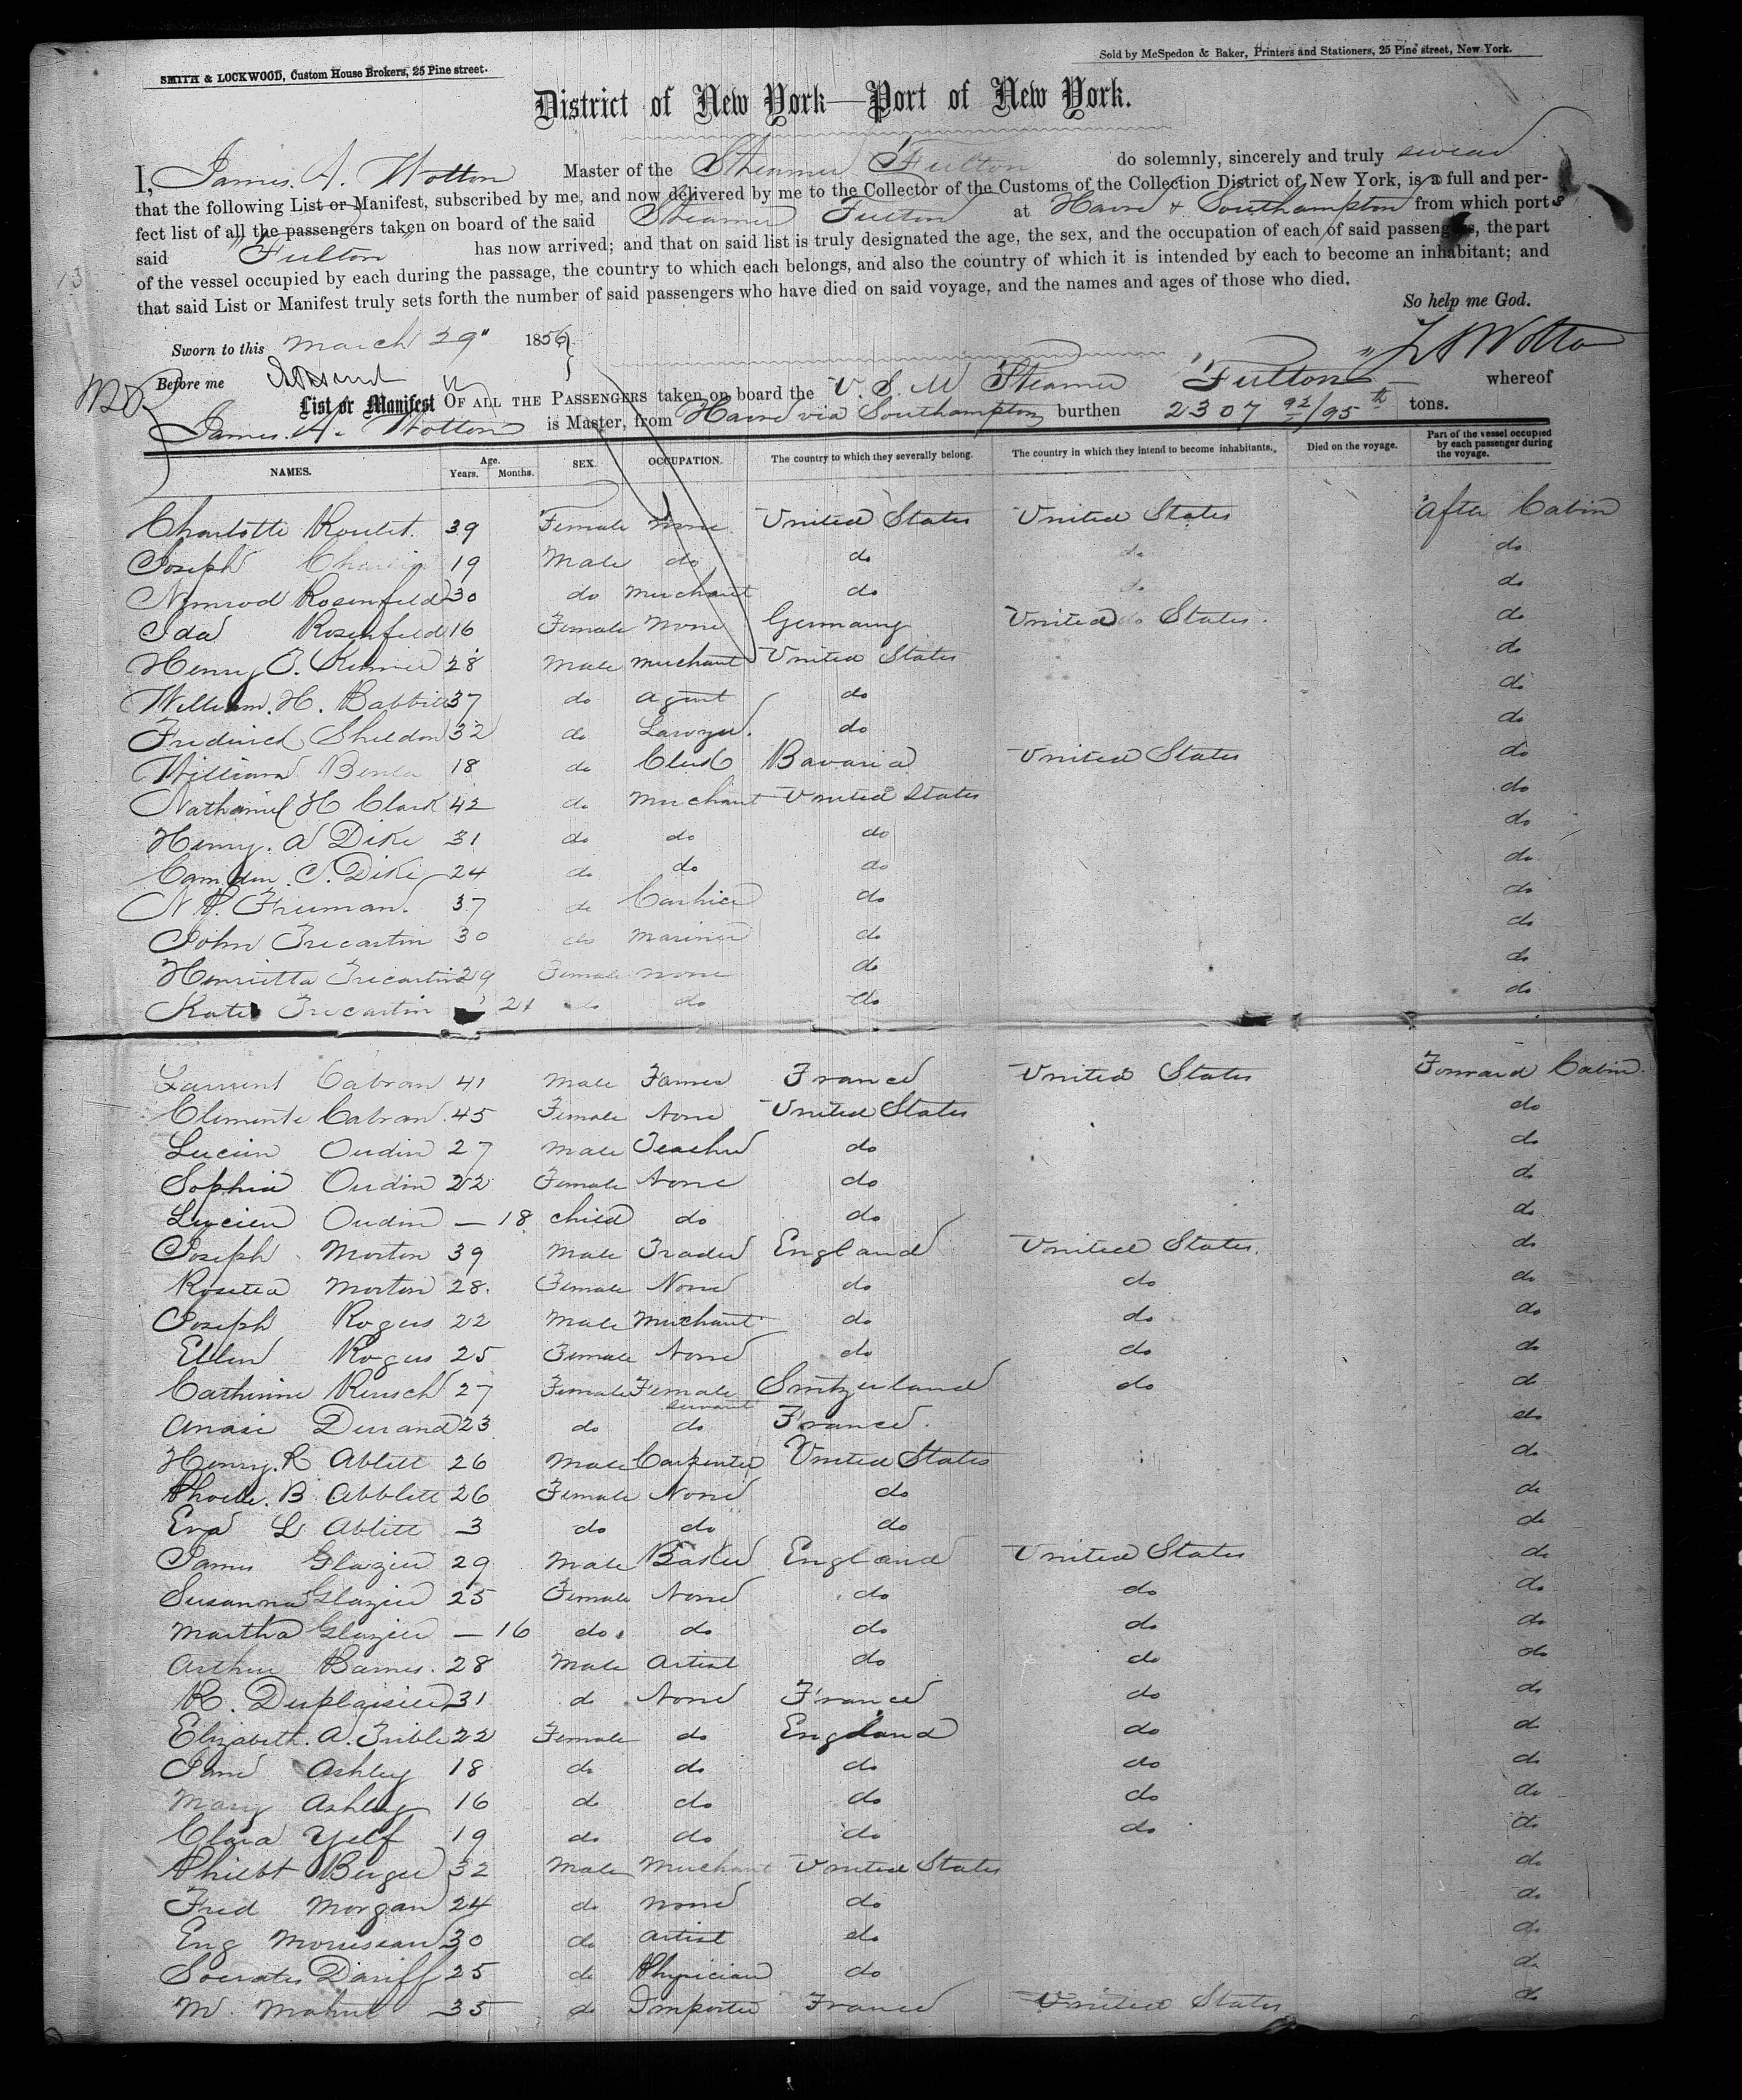 SMITH & LOCKWOOD, Custom House Brokers, 25 Pine street.
Sold by McSpedon & Baker, Printers and Stationers, 25 Pine street, New York.
District of New York—Port of New York.
I, James. A. Wotton Master of the Steamer Fulton do solemnly, sincerely and truly swear
that the following List or Manifest, subscribed by me, and now delivered by me to the Collector of the Customs of the Collection District of New York, is a full and per-
fect list of all the passengers taken on board of the said Steamer Fulton at Havre & Southampton from which ports
said "Fulton" has now arrived; and that on said list is truly designated the age, the sex, and the occupation of each of said passengers, the part
of the vessel occupied by each during the passage, the country to which each belongs, and also the country of which it is intended by each to become an inhabitant; and
that said List or Manifest truly sets forth the number of said passengers who have died on said voyage, and the names and ages of those who died.
So help me God.
Sworn to this March 29" 1856
J A Wotton
Before me
List or Manifest OF ALL THE PASSENGERS taken on board the U. S. M Steamer "Fulton" whereof
James. A. Wotton is Master, from Havre via Southampton burthen 2307 92/95th tons.
NAMES. Age. Years. Months. SEX. OCCUPATION. The country to which they severally belong. The country in which they intend to become inhabitants. Died on the voyage. Part of the vessel occupied by each passenger during the voyage.
Charlotte Roulet. 39 Female None United States United States After Cabin
Joseph 19 Male do do do do
Nimrod Rosenfeld 30 do Merchant do do do
Ida Rosenfeld 16 Female None Germany United States. do
Henry 28 Male Merchant United States do
William. H. Babbitt 37 do Agent do do
Frederick Sheldon 32 do Lawyer. do do
William 18 do Clerk Bavaria United States do
Nathaniel H Clark 42 do Merchant United States do
Henry. A Dike 31 do do do do
Camden. C. Dike 24 do do do do
Freeman. 37 do Cashier do do
John Trecartin 30 do Mariner do do
Henrietta Trecartin 29 Female None do do
Kate Trecartin 21 do do do do
Laurent Cabran 41 Male Farmer France United States Forward Cabin.
Clemente Cabran. 45 Female None United States do
Lucien Oudin 27 Male Teacher do do
Sophia Oudin 22 Female None do do
Lucien Oudin — 18 child do do do
Joseph Morton 39 Male Trader England United States. do
Rosetta Morton 28. Female None do do do
Joseph Rogers 22 Male Merchant do do do
Ellen Rogers 25 Female None do do do
Catherine Reusch 27 Female Female servant Switzerland do do
Anais Durand 23 do do France. do
Henry. R Ablett 26 Male Carpenter United States do
Phoebe. B Abblett 26 Female None do do
Eva L Ablett 3 do do do do
James Glazier 29 Male Baker England United States do
Susanna Glazier 25 Female None do do do
Martha Glazier — 16 do do do do do
Arthur Barnes. 28 Male Artist do do do
R. Duplaisier 31 do None France do do
Elizabeth. A. Trible 22 Female do England do do
Jane Ashley 18 do do do do do
Mary Ashley 16 do do do do do
Clara Yelf 19 do do do do do
Philbt Berger 32 Male Merchant United States do
Fred Morgan 24 do None do do
Eng Morrissean 30 do Artist do do
Socrates Dariff 25 do Physician do do
M. Mahul 35 do Importer France United States do